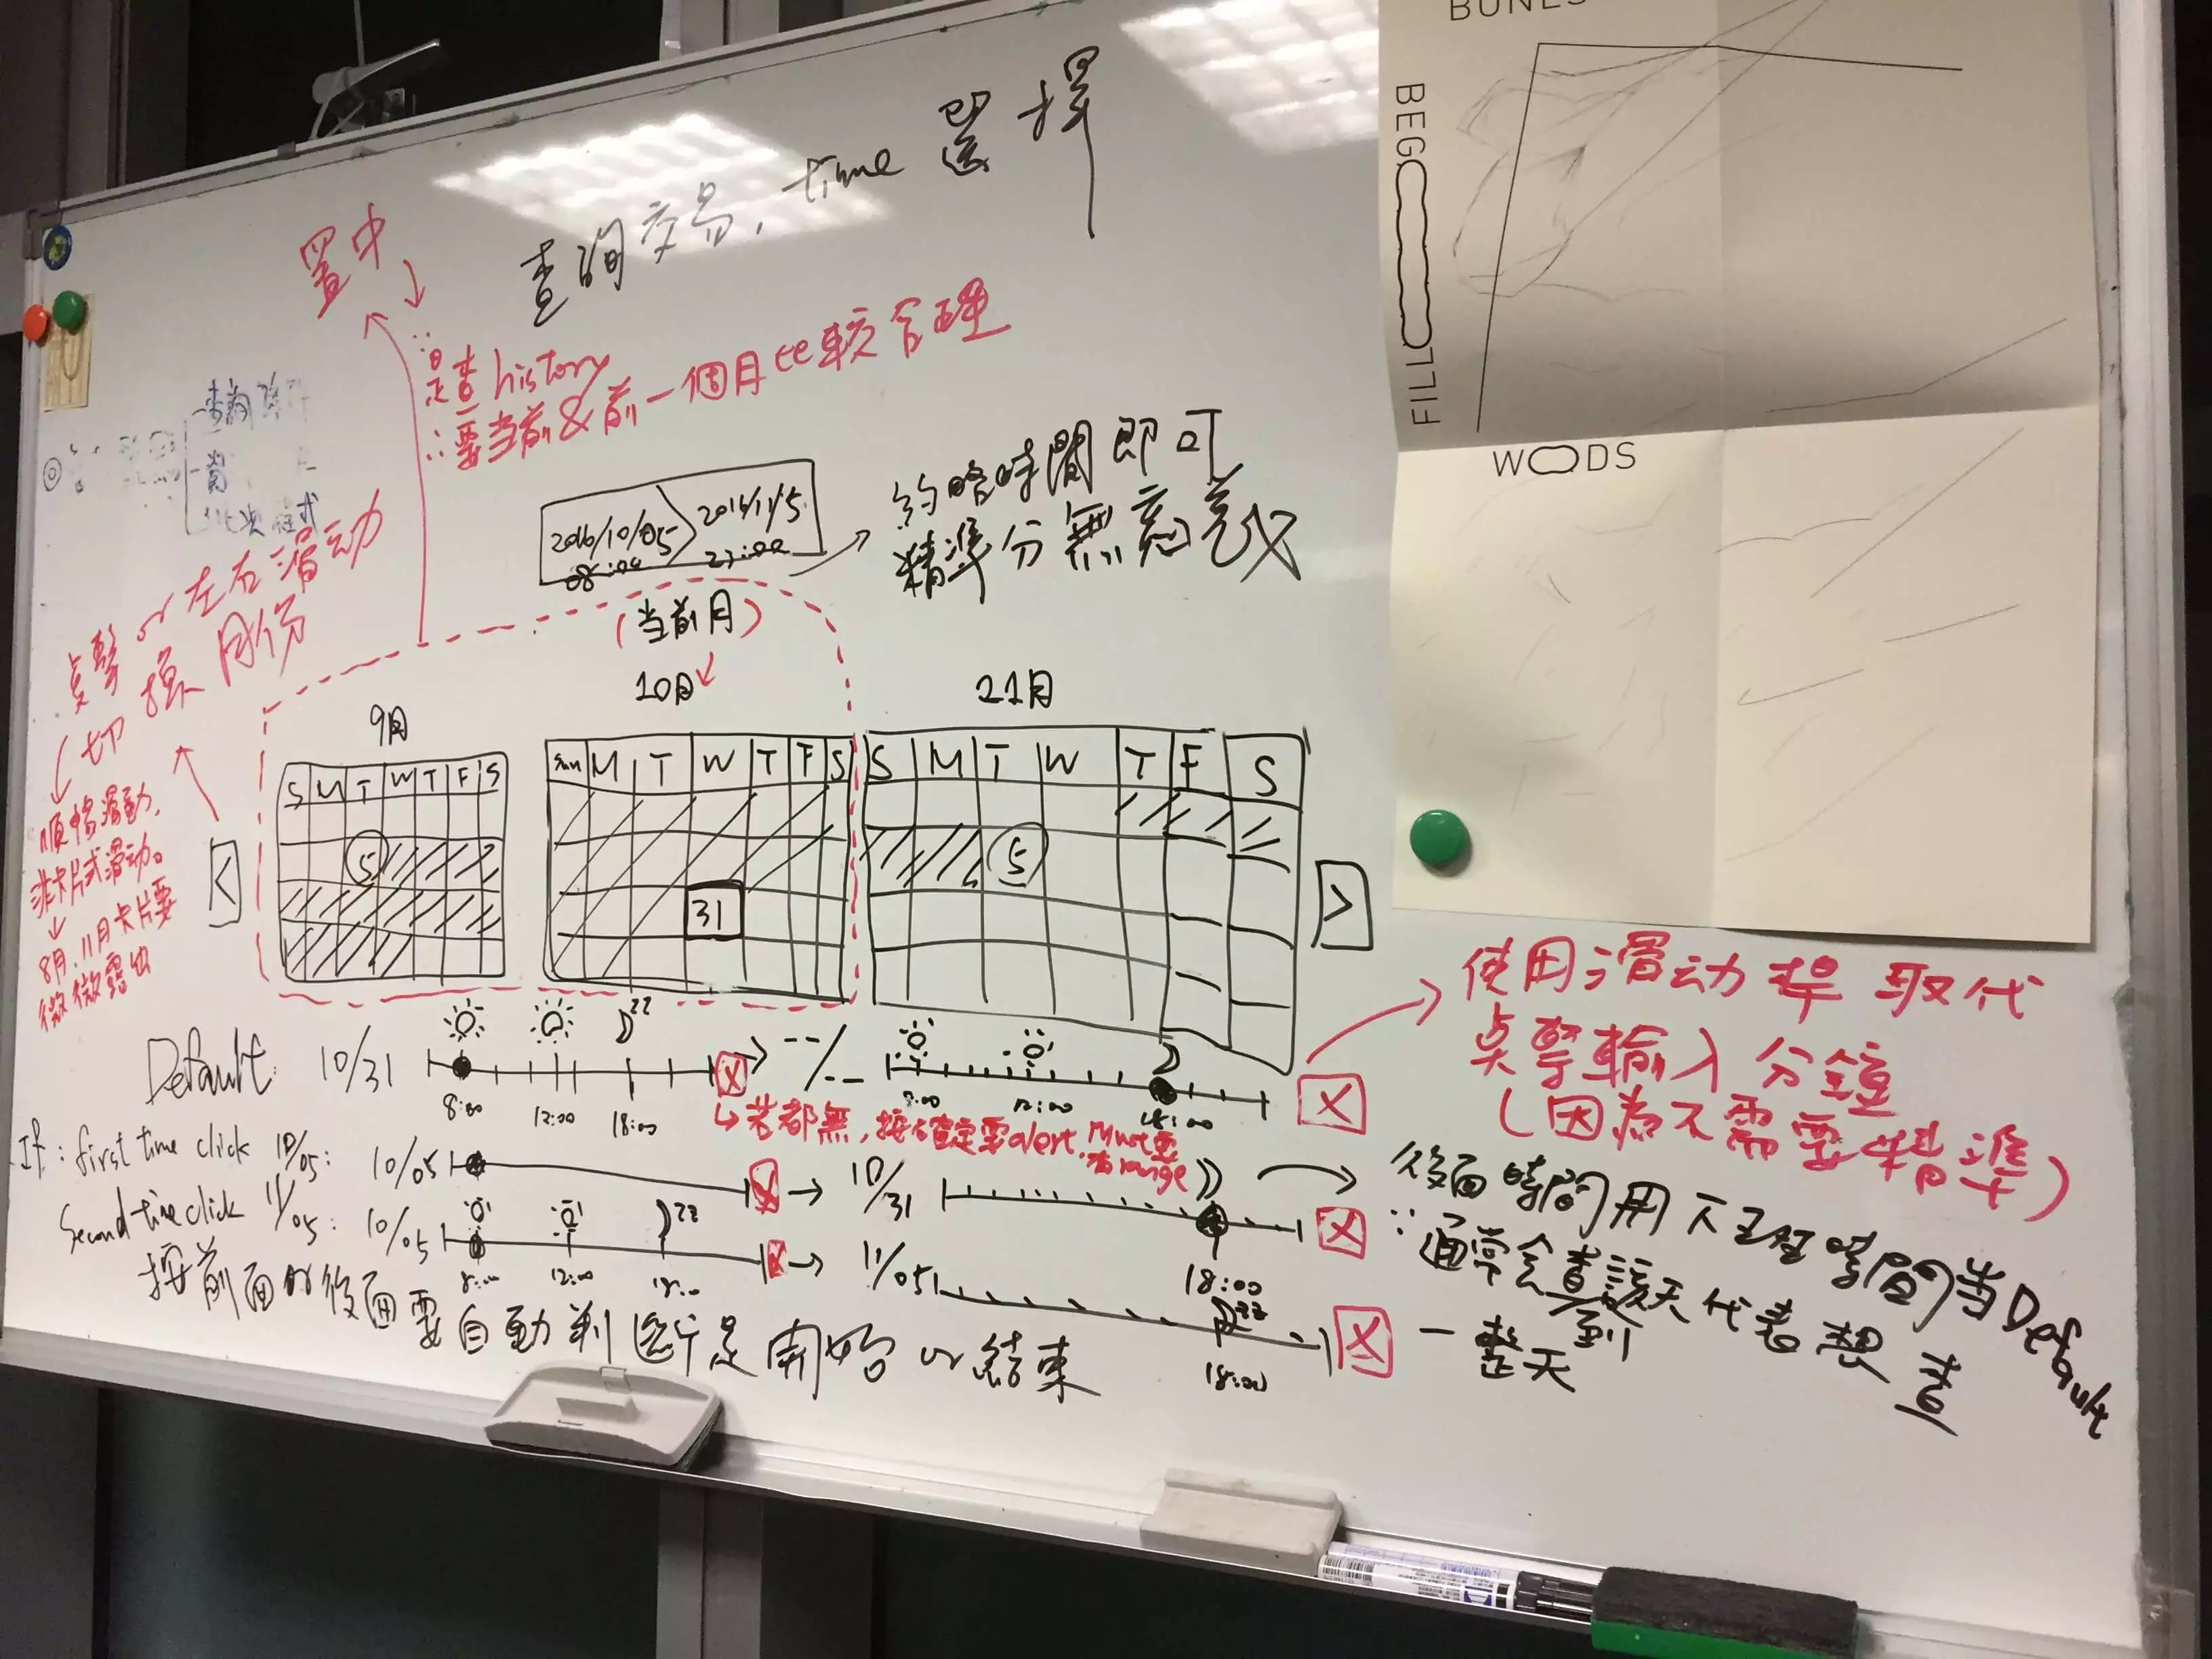 查詢交易, time 選擇
置中
∵是查 history
∴要当前&前一個月比較合理
查詢
程式
2016/10/05 08:00 > 2016/11/5 23:00
約略時間即可
精準分無意義
点擊 or 左右滑动
切換月份
順暢滑動,
非卡片式滑动。
8月.11月卡片要
微微露出
(当前月)
9月
S M T W T F S
5
10月
Sun M T W T F S
31
11月
S M T W T F S
5
<
>
使用滑动桿取代
点擊輸入分鐘
(因為不需要精準)
Default: 10/31
8:00 12:00 18:00
X → --/--
12:00 18:00
X
若都無, 按確定要 alert,
range
If: first time click 10/05: 10/05
X → 10/31
18:00
X
Second time click 11/05: 10/05
8:00 12:00 18:00
X → 11/05
18:00
X
後面時間用下班時間当Default
∵通常会查到該天代表想查
一整天
按前面or後面要自動判断是開始 or 結束
BONES
BEGO
FILL
WOODS